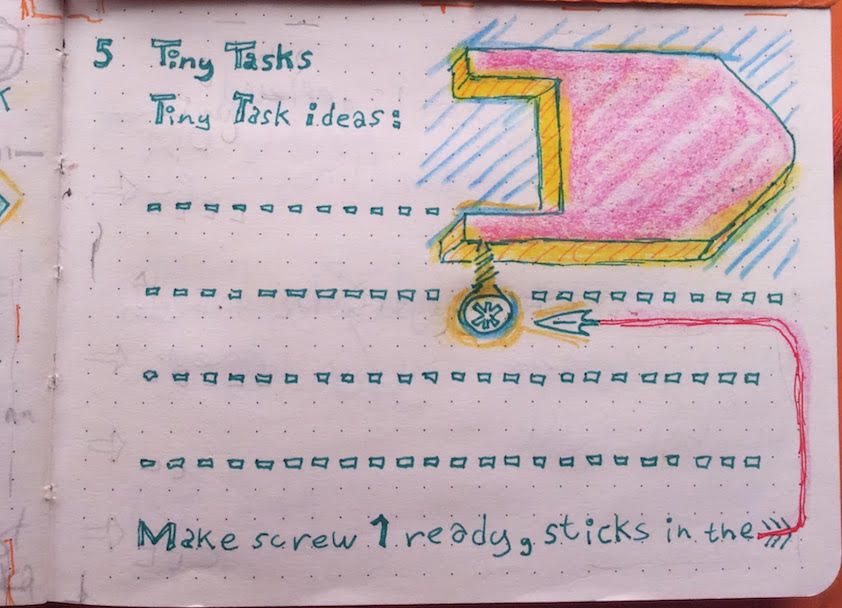 5 Tiny Tasks
Tiny Task ideas:
Make screw 1 ready, sticks in the